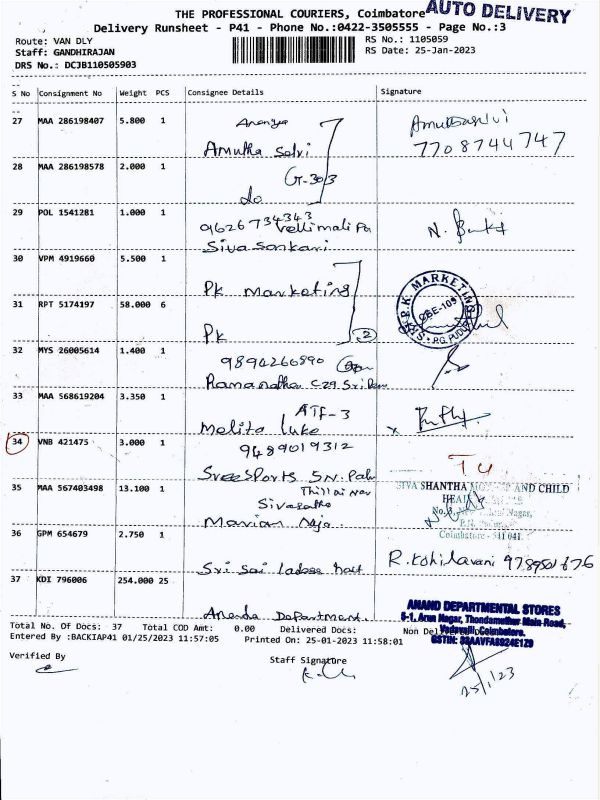 THE PROFESSIONAL COURIERS, Coimbatore
AUTO DELIVERY
Delivery Runsheet - P41 - Phone No.:0422-3505555 - Page No.:3
Route: VAN DLY
RS No.: 1105059
Staff: GANDHIRAJAN
RS Date: 25-Jan-2023
DRS No.: DCJB110505903
S No Consignment No Weight PCS Consignee Details Signature
27 MAA 286198407 5.800 1 Ananya
Amutha Selvi
7708744747
28 MAA 286198578 2.000 1 G-303
do
29 POL 1541281 1.000 1 9626734343
Sivasankari
30 VPM 4919660 5.500 1
Pk Marketing
P.K. MARKETING
CBE-109
31 RPT 5174197 58.000 6
Pk 2
32 MYS 26005614 1.400 1 9894266890
33 MAA 568619204 3.350 1 ATF-3
Melita Luke
34 VNB 421475 3.000 1 9489019312
T4
Sree Sports S.N. Palm
35 MAA 567403498 13.100 1 Thillai Nar
SIVA SHANTHA AND CHILD
Coimbatore - 541 041.
36 GPM 654679 2.750 1
R. Kohilavani
Sri Sai
37 KDI 796006 254.000 25
Ananda Department.
ANAND DEPARTMENTAL STORES
6-1, Arun Nagar, Thondamuthur Main Road,
Vadavalli, Coimbatore.
Total No. Of Docs: 37 Total COD Amt: 0.00 Delivered Docs: Non Del
Entered By :BACKIAP41 01/25/2023 11:57:05 Printed On: 25-01-2023 11:58:01
Verified By
Staff Signature
25/1/23